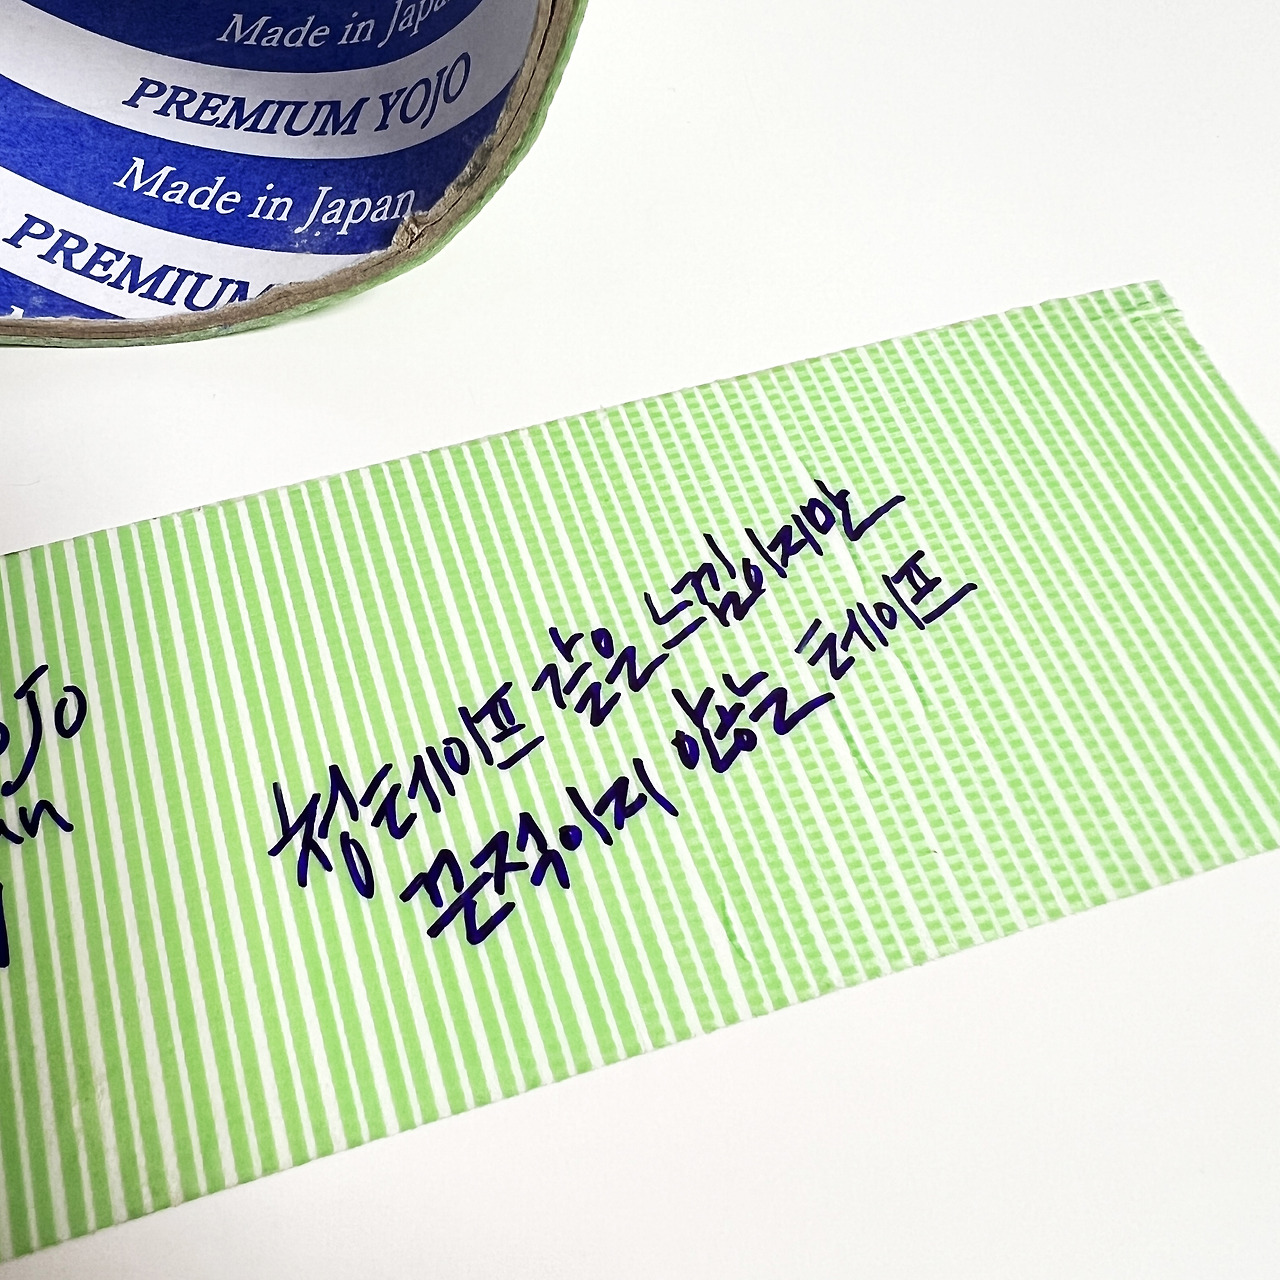 Made in Japa
PREMIUM YOJO
Made in Japan
PREMIUM
OJO
an
청테이프 같은 느낌이지만
끈적이지 않는 테이프